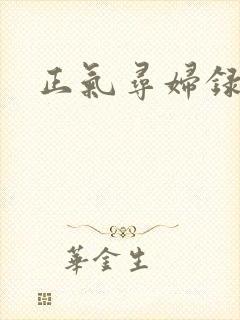 正氣尋婦録
華金生